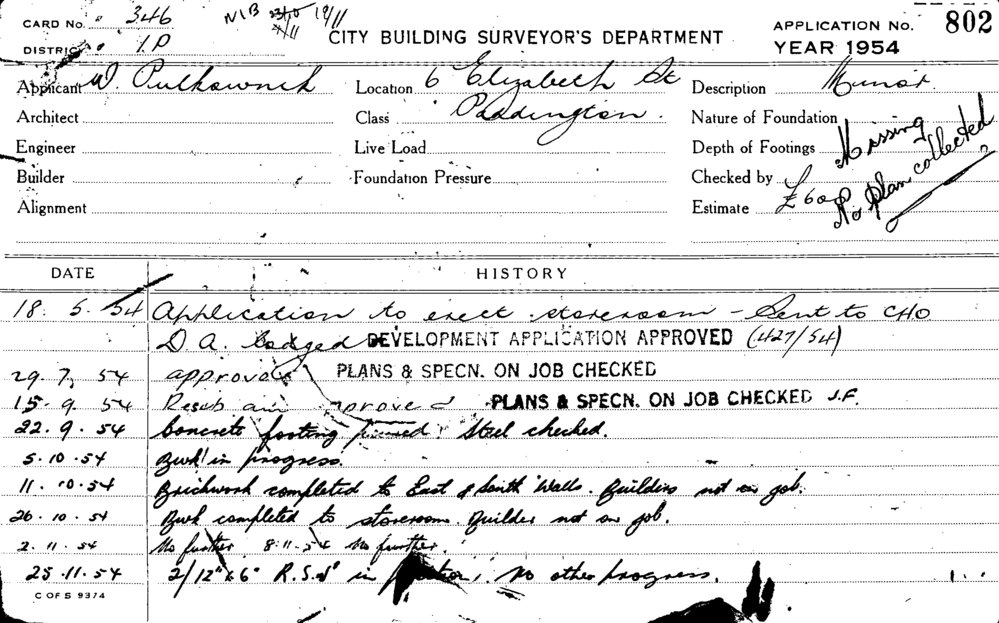 CARD No. 346
N1B 19/11
DISTRICT 1P
CITY BUILDING SURVEYOR'S DEPARTMENT
APPLICATION No. 802
YEAR 1954
Applicant W. Pulkownik
Location 6 Elizabeth St
Description Minor
Architect
Class Paddington.
Nature of Foundation
Engineer
Live Load
Depth of Footings
Missing
No plan collected
Builder
Foundation Pressure
Checked by
Alignment
Estimate £600
DATE HISTORY
18. 5. 54 Application to erect storeroom - Sent to CHO
D.A. lodged DEVELOPMENT APPLICATION APPROVED (427/54)
29. 7. 54 approved PLANS & SPECN. ON JOB CHECKED
15. 9. 54 PLANS & SPECN. ON JOB CHECKED J.F.
22. 9. 54 Concrete footing poured. Steel checked.
5. 10. 54 Bwk in progress.
11. 10. 54 Brickwork completed to East & South Walls. Builders not on job.
26. 10. 54 Bwk completed to storeroom. Builder not on job.
2. 11. 54 No further. 8.11.54 No further.
25. 11. 54 2/12" x 6" R.S.J's in No other progress.
C OF S 9374